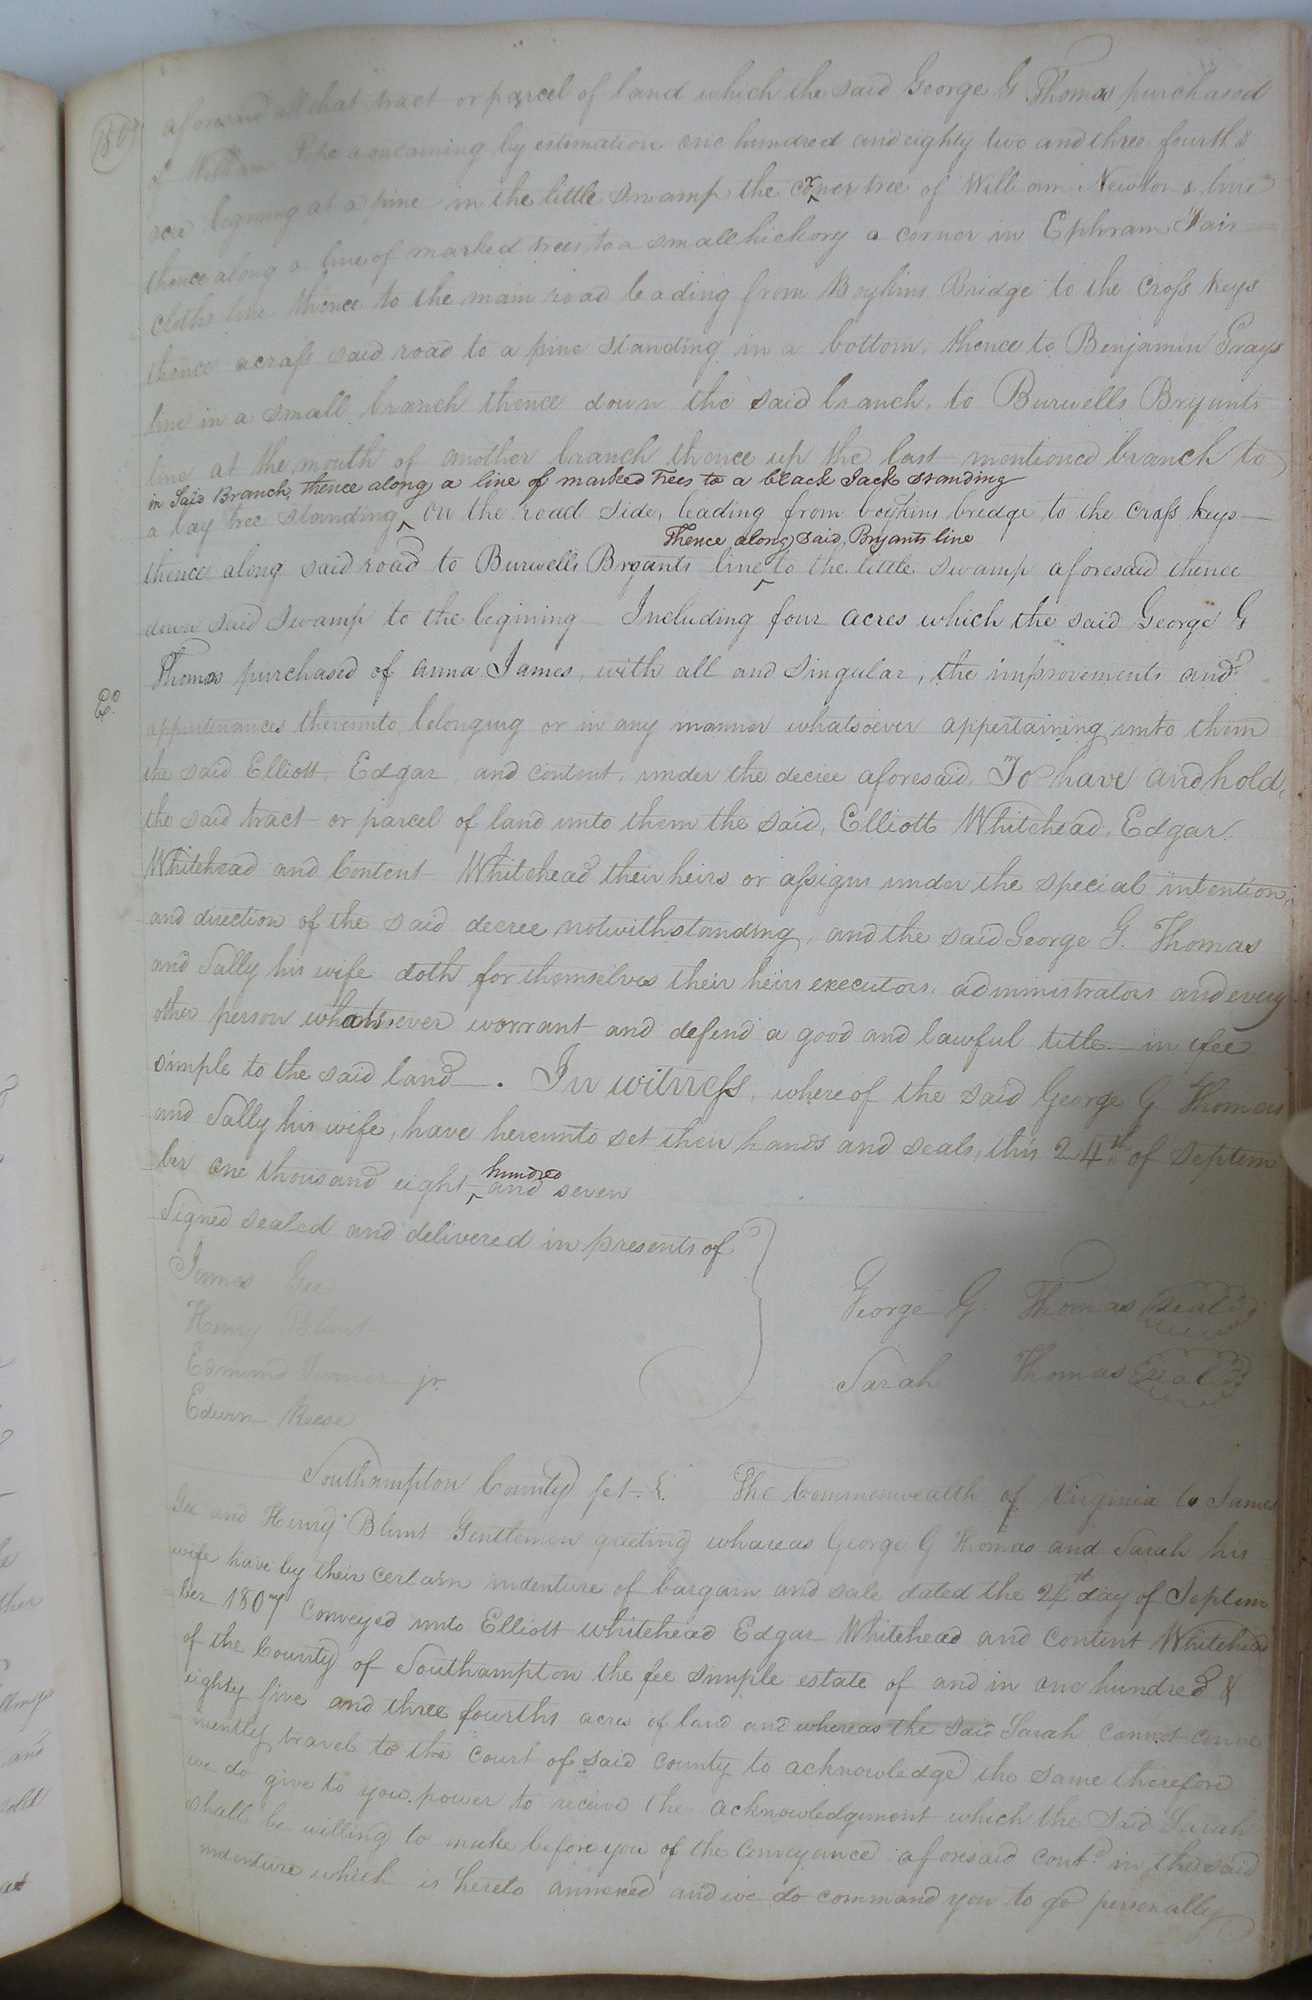 aforesaid all that tract or parcel of land which the said George G Thomas purchased
of William Pope containing by estimation one hundred and eighty two and three fourths
acre begining at a pine in the little swamp the corner tree of William Newtons line
thence along a line of marked trees to a small hickory a corner in Ephram Fair
cloths line thence to the main road leading from Boykins Bridge to the Cross keys
thence across said road to a pine standing in a bottom, thence to Benjamin Grays
line in a small branch thence down the said branch, to Burwells Bryants
line at the mouth of another branch thence up the last mentioned branch to
in Said Branch, thence along a line of marked Trees to a black Jack standing
a bay tree standing on the road side, leading from boykins bridge to the cross keys
Thence along said, Bryants line
thence along said road to Burwells Bryants line to the little swamp aforesaid thence
down said swamp to the begining Including four acres which the said George G
Thomas purchased of anna James, with all and singular, the improvements and
Eo.
appurtenances thereunto, belonging or in any manner whatsoever appertaining unto them
the said Elliott, Edgar, and content, under the decree aforesaid, To have and hold,
the said tract or parcel of land unto them the said, Elliott Whitehead, Edgar
Whitehead and Content Whitehead their heirs or assigns under the special intention,
and direction of the said decree notwithstanding, and the said George G. Thomas
and Sally his wife doth for themselves their heirs executors, administrators and every
other person whatsoever warrant and defend a good and lawful title in fee
simple to the said land. In witness, whereof the said George G Thomas
and Sally his wife, have hereunto set their hands and seals, this 24th of Septem
ber one thousand eight hundred and seven
Signed sealed and delivered in presents of
James Gee
Henry Blunt
Edmund Turner jr.
Edwin Reese
George G. Thomas Seal
Sarah Thomas Seal
Southampton County sct. The Commonwealth of Virginia to James
Gee and Henry Blunt Gentlemen greeting whareas George G Thomas and Sarah his
wife have by their certain indenture of bargain and sale dated the 24th day of Septem
ber 1807 conveyed unto Elliott whitehead Edgar Whitehead and content Whitehead
of the County of Southampton the fee simple estate of and in one hundred &
eighty five and three fourths acres of land and whereas the said Sarah cannot conve
niently travel to the court of said county to acknowledge the same therefore
we do give to you power to receive the acknowledgement which the said Sarah
shall be willing to make before you of the conveyance aforesaid contd in the said
indenture which is hereto annexed and we do command you to go personally